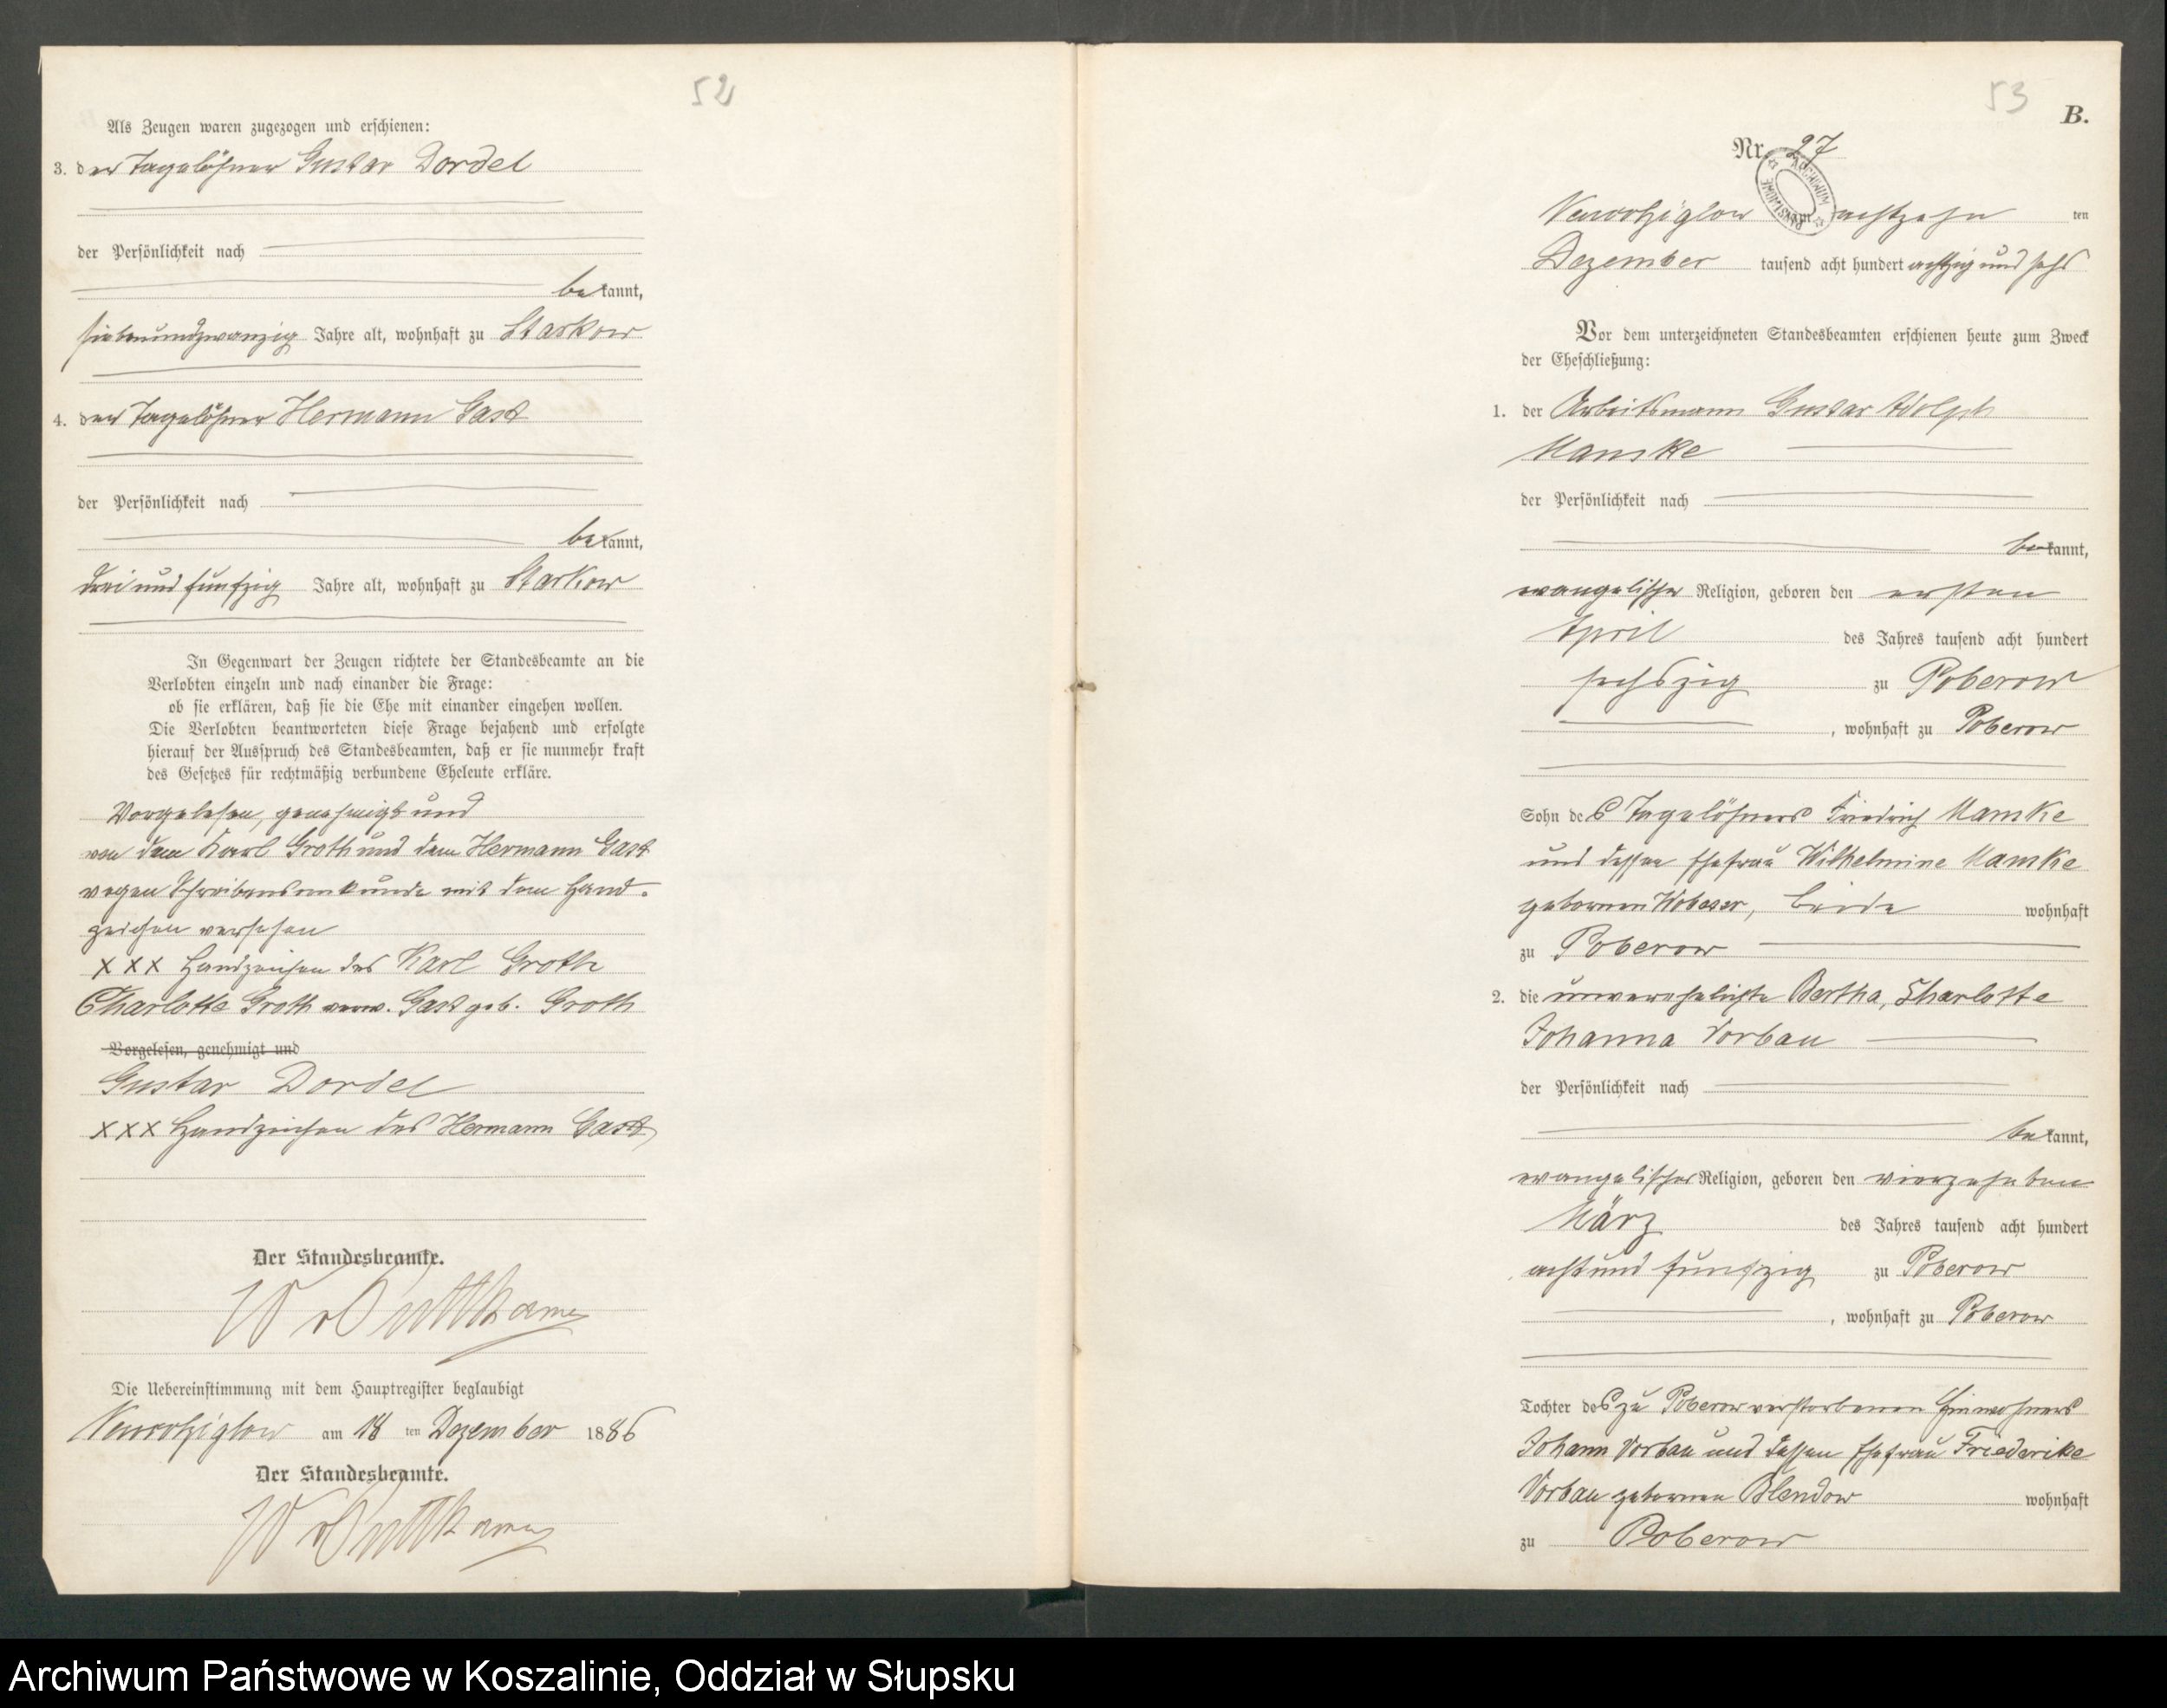 52
Als Zeugen waren zugezogen und erschienen:
3. der Tagelöhner Gustav Dordel
der Persönlichkeit nach
bekannt,
siebenundzwanzig Jahre alt, wohnhaft zu Starkow
4. der Tagelöhner Hermann Gast
der Persönlichkeit nach
bekannt,
drei und fünfzig Jahre alt, wohnhaft zu Starkow
In Gegenwart der Zeugen richtete der Standesbeamte an die
Verlobten einzeln und nach einander die Frage:
ob sie erklären, daß sie die Ehe mit einander eingehen wollen.
Die Verlobten beantworteten diese Frage bejahend und erfolgte
hierauf der Ausspruch des Standesbeamten, daß er sie nunmehr kraft
des Gesetzes für rechtmäßig verbundene Eheleute erkläre.
Vorgelesen, genehmigt und
von dem Karl Groth und dem Hermann Gast
wegen Schreibensunkunde mit dem Hand-
zeichen versehen
XXX Handzeichen des Karl Groth
Charlotte Groth verw. Gast geb. Groth
Vorgelesen, genehmigt und
Gustav Dordel
XXX Handzeichen des Hermann Gast
Der Standesbeamte.
W v Puttkamer
Die Uebereinstimmung mit dem Hauptregister beglaubigt
am 18 ten Dezember 1886
Der Standesbeamte.
W v Puttkamer
53
B.
Nr. 27
am achtzehn ten
Dezember tausend acht hundert achtzig und sechs
Vor dem unterzeichneten Standesbeamten erschienen heute zum Zweck
der Eheschließung:
1. der Arbeitsmann Gustav Adolph
Mamke
der Persönlichkeit nach
bekannt,
evangelischer Religion, geboren den ersten
April des Jahres tausend acht hundert
sechszig zu Poberow
, wohnhaft zu Poberow
Sohn des Tagelöhners Friedrich Mamke
und dessen Ehefrau Wilhelmine Mamke
gebornen Wobeser, beide wohnhaft
zu Poberow
2. die unverehelichte Bertha, Charlotte
Johanna Vorbau
der Persönlichkeit nach
bekannt,
evangelischer Religion, geboren den vierzehnten
März des Jahres tausend acht hundert
acht und fünfzig zu Poberow
, wohnhaft zu Poberow
Tochter des zu Poberow verstorbenen Einwohners
Johann Vorbau und dessen Ehefrau Friederike
Vorbau gebornen Blendow wohnhaft
zu Poberow
Archiwum Państwowe w Koszalinie, Oddział w Słupsku